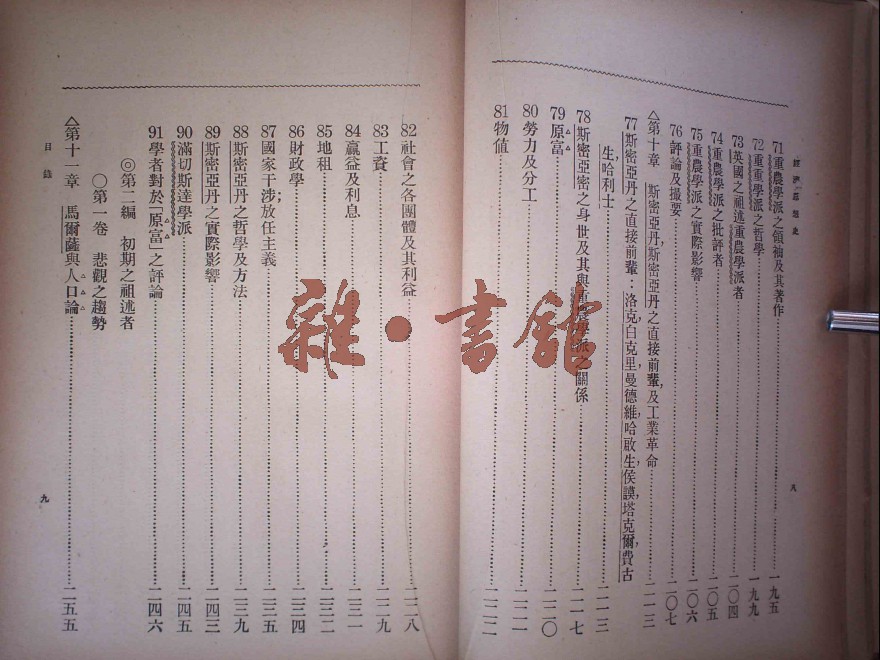 經濟思想史
71重農學派之領袖及其著作……一九五
72重重學派之哲學……一九九
73英國之祖述重農學派者……二〇四
74重農學派之批評者……二〇五
75重農學派之實際影響……二〇六
76評論及撮要……二〇七
△第十章 斯密亞丹,斯密亞丹之直接前輩,及工業革命……二一三
77斯密亞丹之直接前輩：洛克,白克里,曼德維,哈啟生,侯謨,塔克爾,費古
生,哈利士……二一三
78斯密亞密之身世及其與重農學派之關係……二一七
79原富……二二〇
80勞力及分工……二二一
81物值……二二二
八
82社會之各團體及其利益……二二八
83工資……二二九
84贏益及利息……二三一
85地租……二三二
86財政學……二三四
87國家干涉;放任主義……二三五
88斯密亞丹之哲學及方法……二三九
89斯密亞丹之實際影響……二四三
90滿切斯達學派……二四五
91學者對於「原富」之評論……二四六
◎第二編 初期之祖述者
〇第一卷 悲觀之趨勢
△第十一章 馬爾薩與人口論……二五五
目錄
九
雜·書館